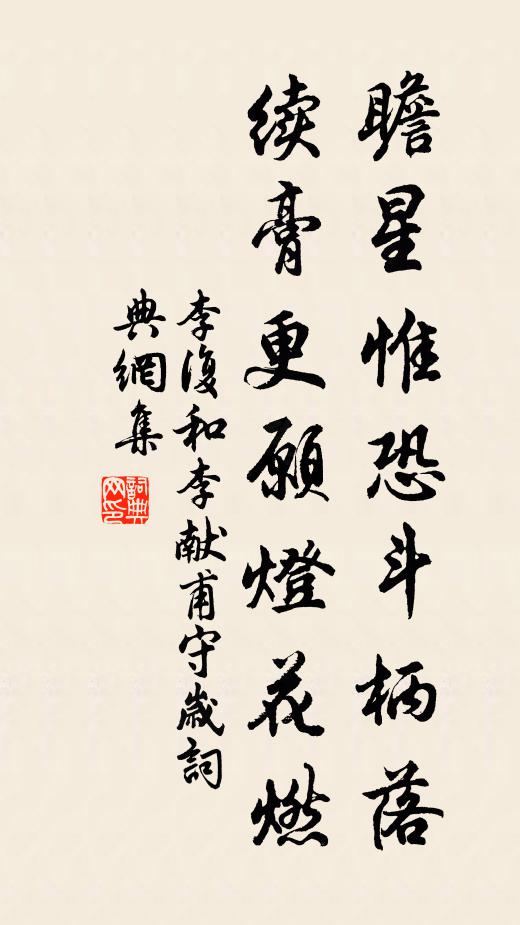 瞻星惟恐斗柄落
续膏更願燈花燃
李復和李献甫守歲詞
典網集
詞典网印